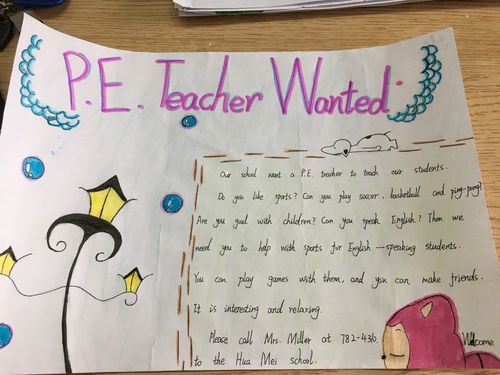 P.E. Teacher Wanted
Our school want a P.E. teacher to teach our students.
Do you like sports? Can you play soccer, basketball and ping-pong?
Are you good with children? Can you speak English? Then we
need you to help with sports for English-speaking students.
You can play games with them, and you can make friends.
It is interesting and relaxing.
Please call Mrs. Miller at 782-4310, Welcome
to the Hua Mei school.